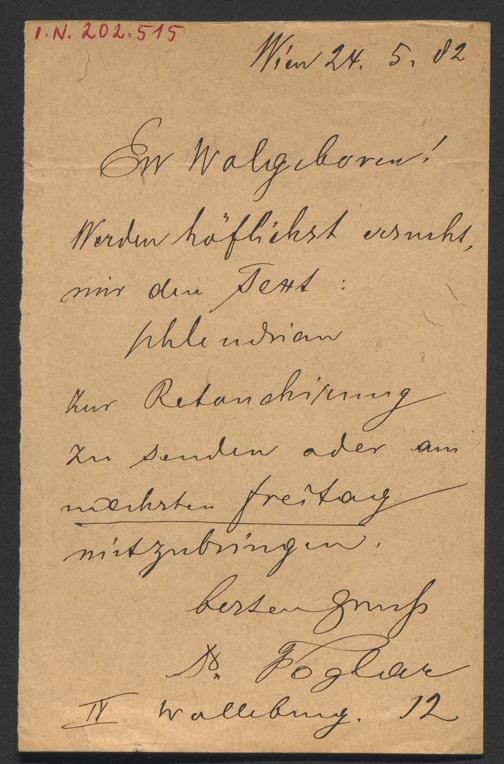 I.N. 202.515
Wien 24. 5. 82
Ew Wolgeboren!
Werden höflichst ersucht,
mir den Text :
schlendrian
zur Retouchirung
zu senden oder am
nächsten freitag
mitzubringen.
besten gruß
Dr. Foglar
IV 12